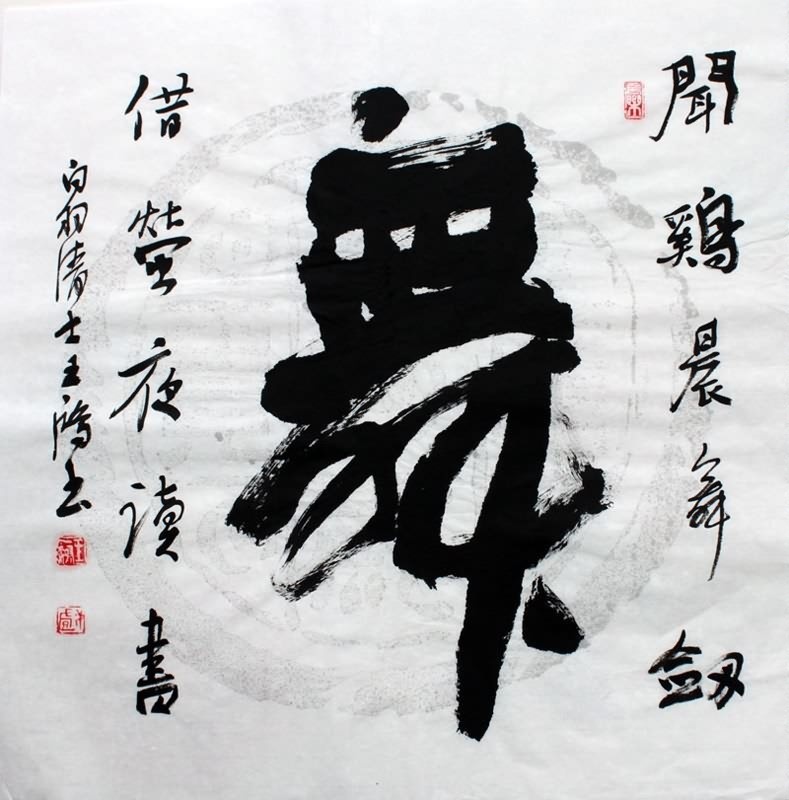 聞鷄晨舞劔
舞
借螢夜讀書
白羽清士王鴻書